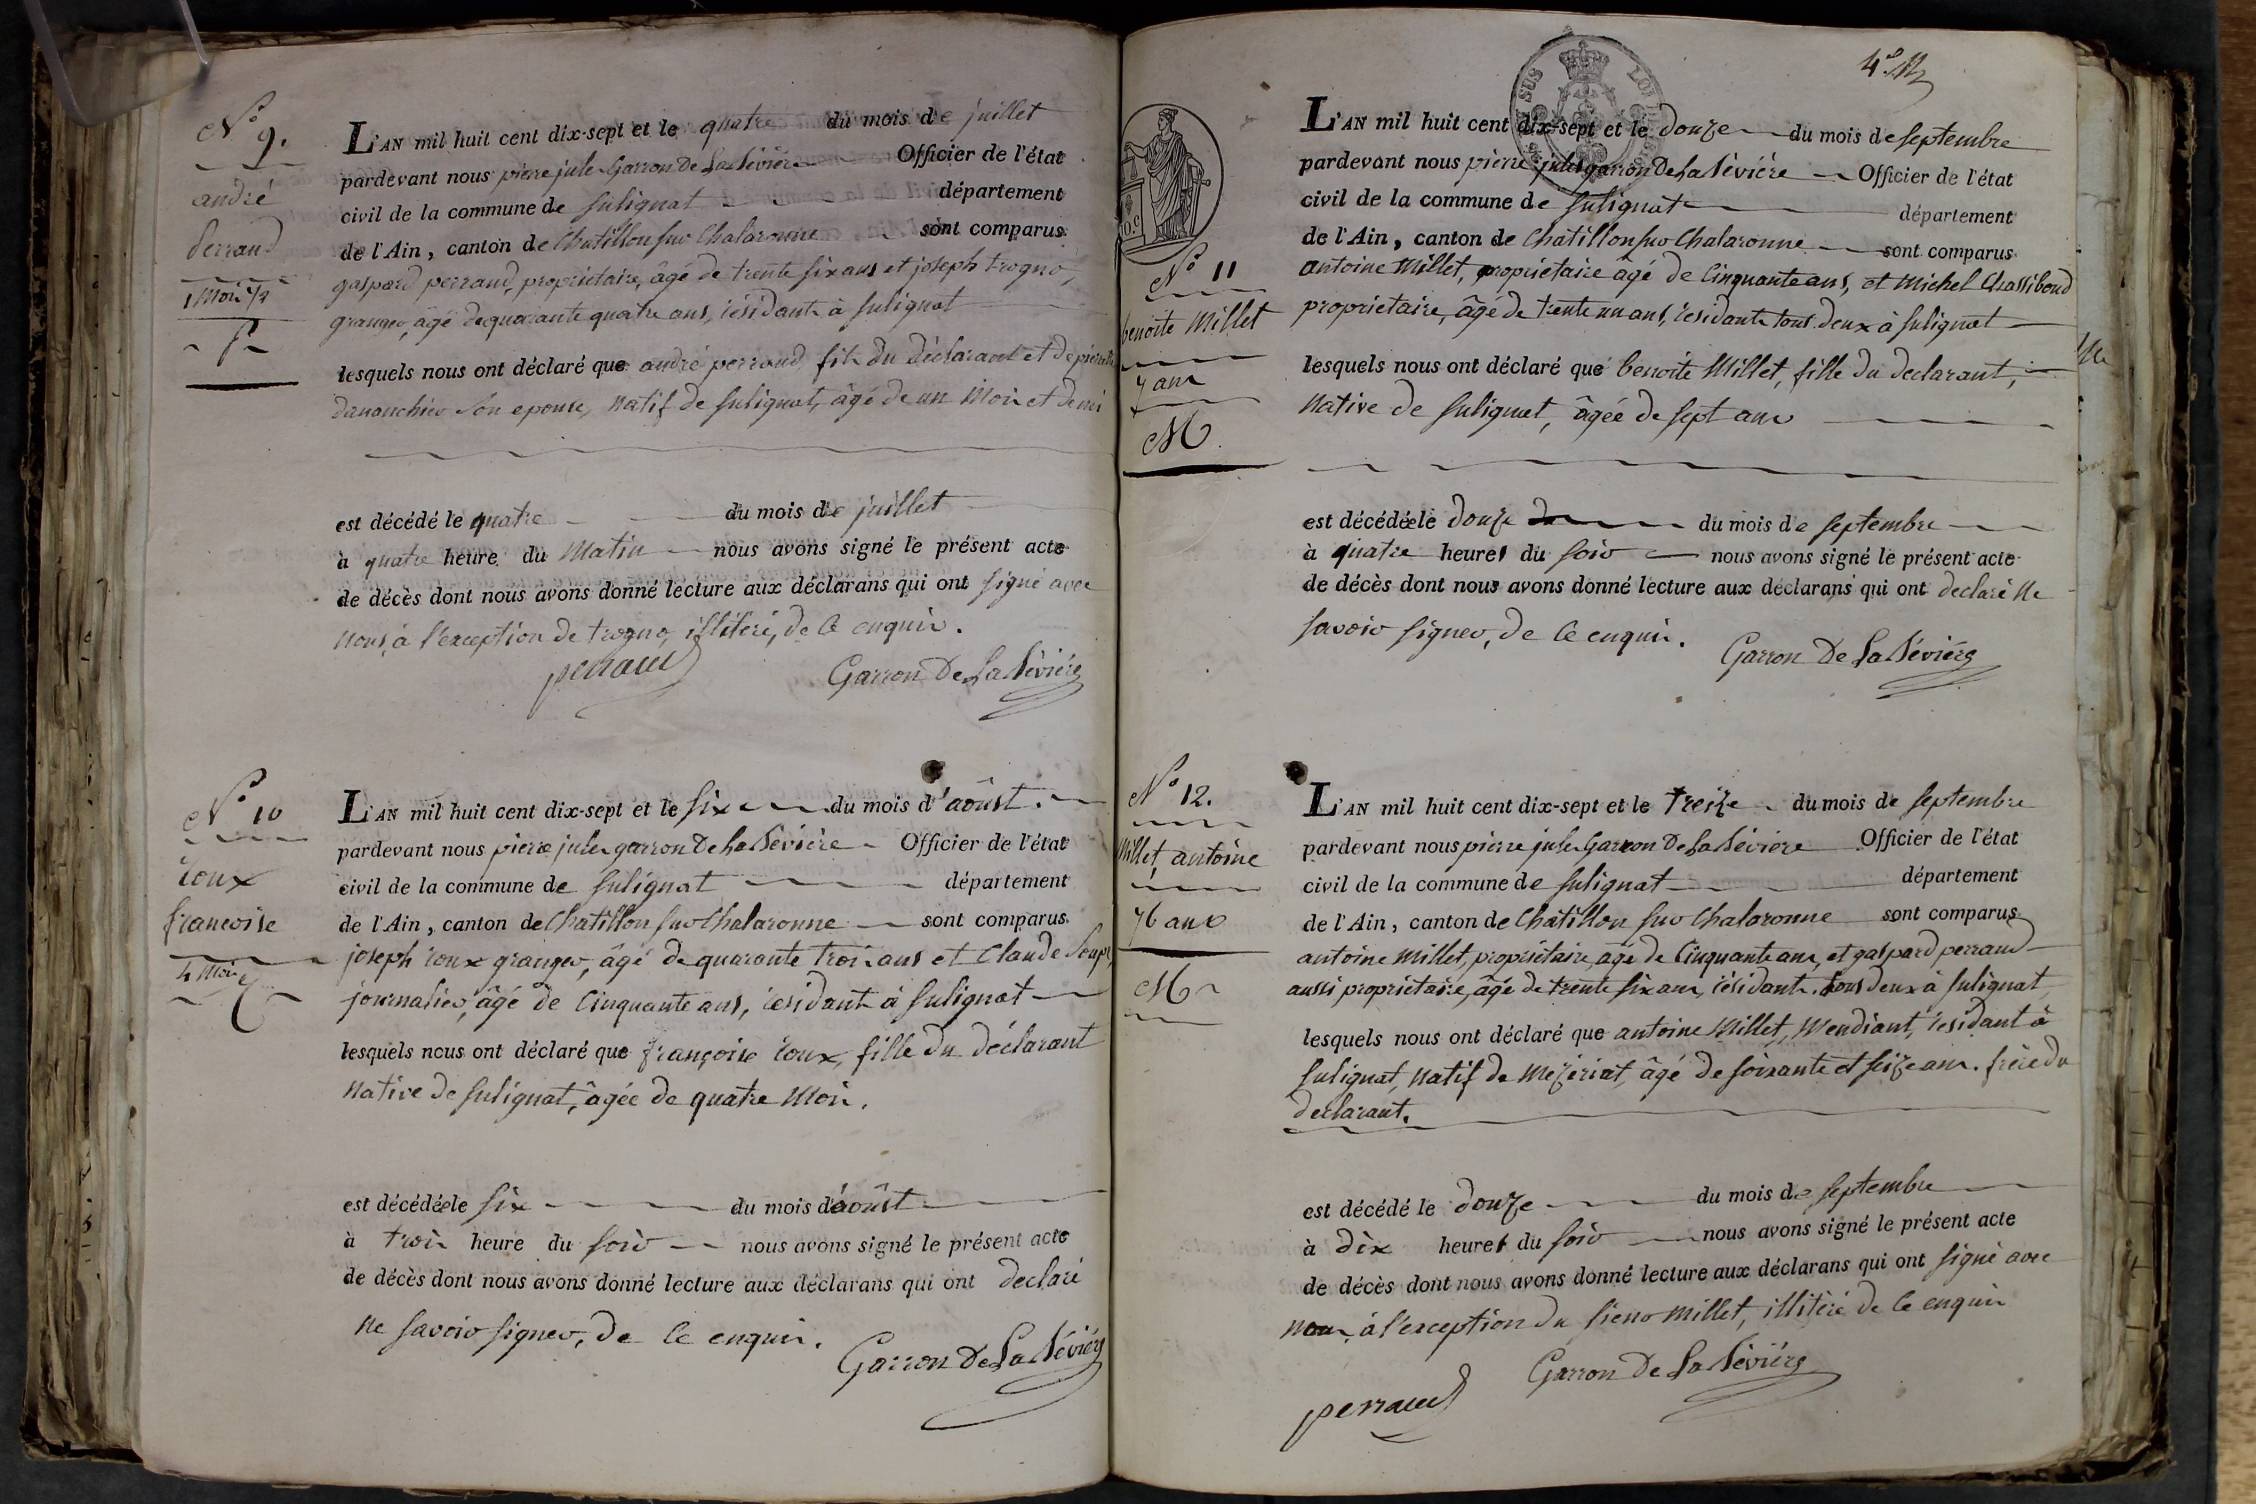 N.o 9.
andré
perraud
1 Mois 1/2
L'AN mil huit cent dix-sept et le quatre du mois de juillet
pardevant nous pierre jules Garron De La Sévière Officier de l'état
civil de la commune de Sulignat département
de l'Ain, canton de Chatillon sur Chalaronne sont comparus
gaspard perraud, proprietaire, âgé de trente six ans et joseph trogno,
granger, âgé de quarante quatre ans, résidants à Sulignat
lesquels nous ont déclaré que andré perraud, fils du déclarant et de
son epouse, natif de Sulignat, âgé de un Mois et demi
est décédé le quatre du mois de juillet
à quatre heure du Matin nous avons signé le présent acte
de décès dont nous avons donné lecture aux déclarans qui ont signé avec
nous, à l'exception de trogno, illiteré, de ce enquis.
perraud
Garron De La Sévière
N.o 10
roux
francoise
4 Mois
L'AN mil huit cent dix-sept et le six du mois d'août.
pardevant nous pierre jules garron De La Sévière Officier de l'état
civil de la commune de Sulignat département
de l'Ain, canton de Chatillon sur Chalaronne sont comparus
joseph roux granger, âgé de quarante trois ans et Claude
journalier, âgé de Cinquante ans, résidants à Sulignat
lesquels nous ont déclaré que françoise roux, fille du déclarant
native de Sulignat, âgée de quatre Mois.
est décédée le six du mois d'août
à trois heure du soir nous avons signé le présent acte
de décès dont nous avons donné lecture aux déclarans qui ont declaré
ne savoir signer, de ce enquis.
Garron De La Sévière
4.e
N.o 11
benoite Millet
7 ans
M
L'AN mil huit cent dix-sept et le douze du mois de septembre
pardevant nous pierre jules garron De La Sévière Officier de l'état
civil de la commune de Sulignat département
de l'Ain, canton de Chatillon sur Chalaronne sont comparus
antoine Millet, propriétaire âgé de Cinquante ans, et Michel Chassiboud
proprietaire, âgé de trente un ans, résidants tous deux à Sulignat
lesquels nous ont déclaré que benoite Millet, fille du declarant,
native de Sulignat, âgée de sept ans
est décédée le douze du mois de septembre
à quatre heures du soir nous avons signé le présent acte
de décès dont nous avons donné lecture aux déclarans qui ont declaré ne
savoir signer, de ce enquis.
Garron De La Sévière
N.o 12.
Millet, antoine
76 ans
M
L'AN mil huit cent dix-sept et le treize du mois de septembre
pardevant nous pierre jules Garron De La Sévière Officier de l'état
civil de la commune de Sulignat département
de l'Ain, canton de Chatillon sur Chalaronne sont comparus
antoine Millet, propriétaire, âgé de Cinquante ans, et gaspard perraud
aussi propriétaire, âgé de trente six ans, résidants tous deux à Sulignat
lesquels nous ont déclaré que antoine Millet, Mendiant, résidant à
Sulignat, natif de Mezériat, âgé de soixante et seize ans. frère du
declarant.
est décédé le douze du mois de septembre
à dix heures du soir nous avons signé le présent acte
de décès dont nous avons donné lecture aux déclarans qui ont signé avec
nous, à l'exception du sieur Millet, illitéré de ce enquis
Garron De La Sévière
perraud